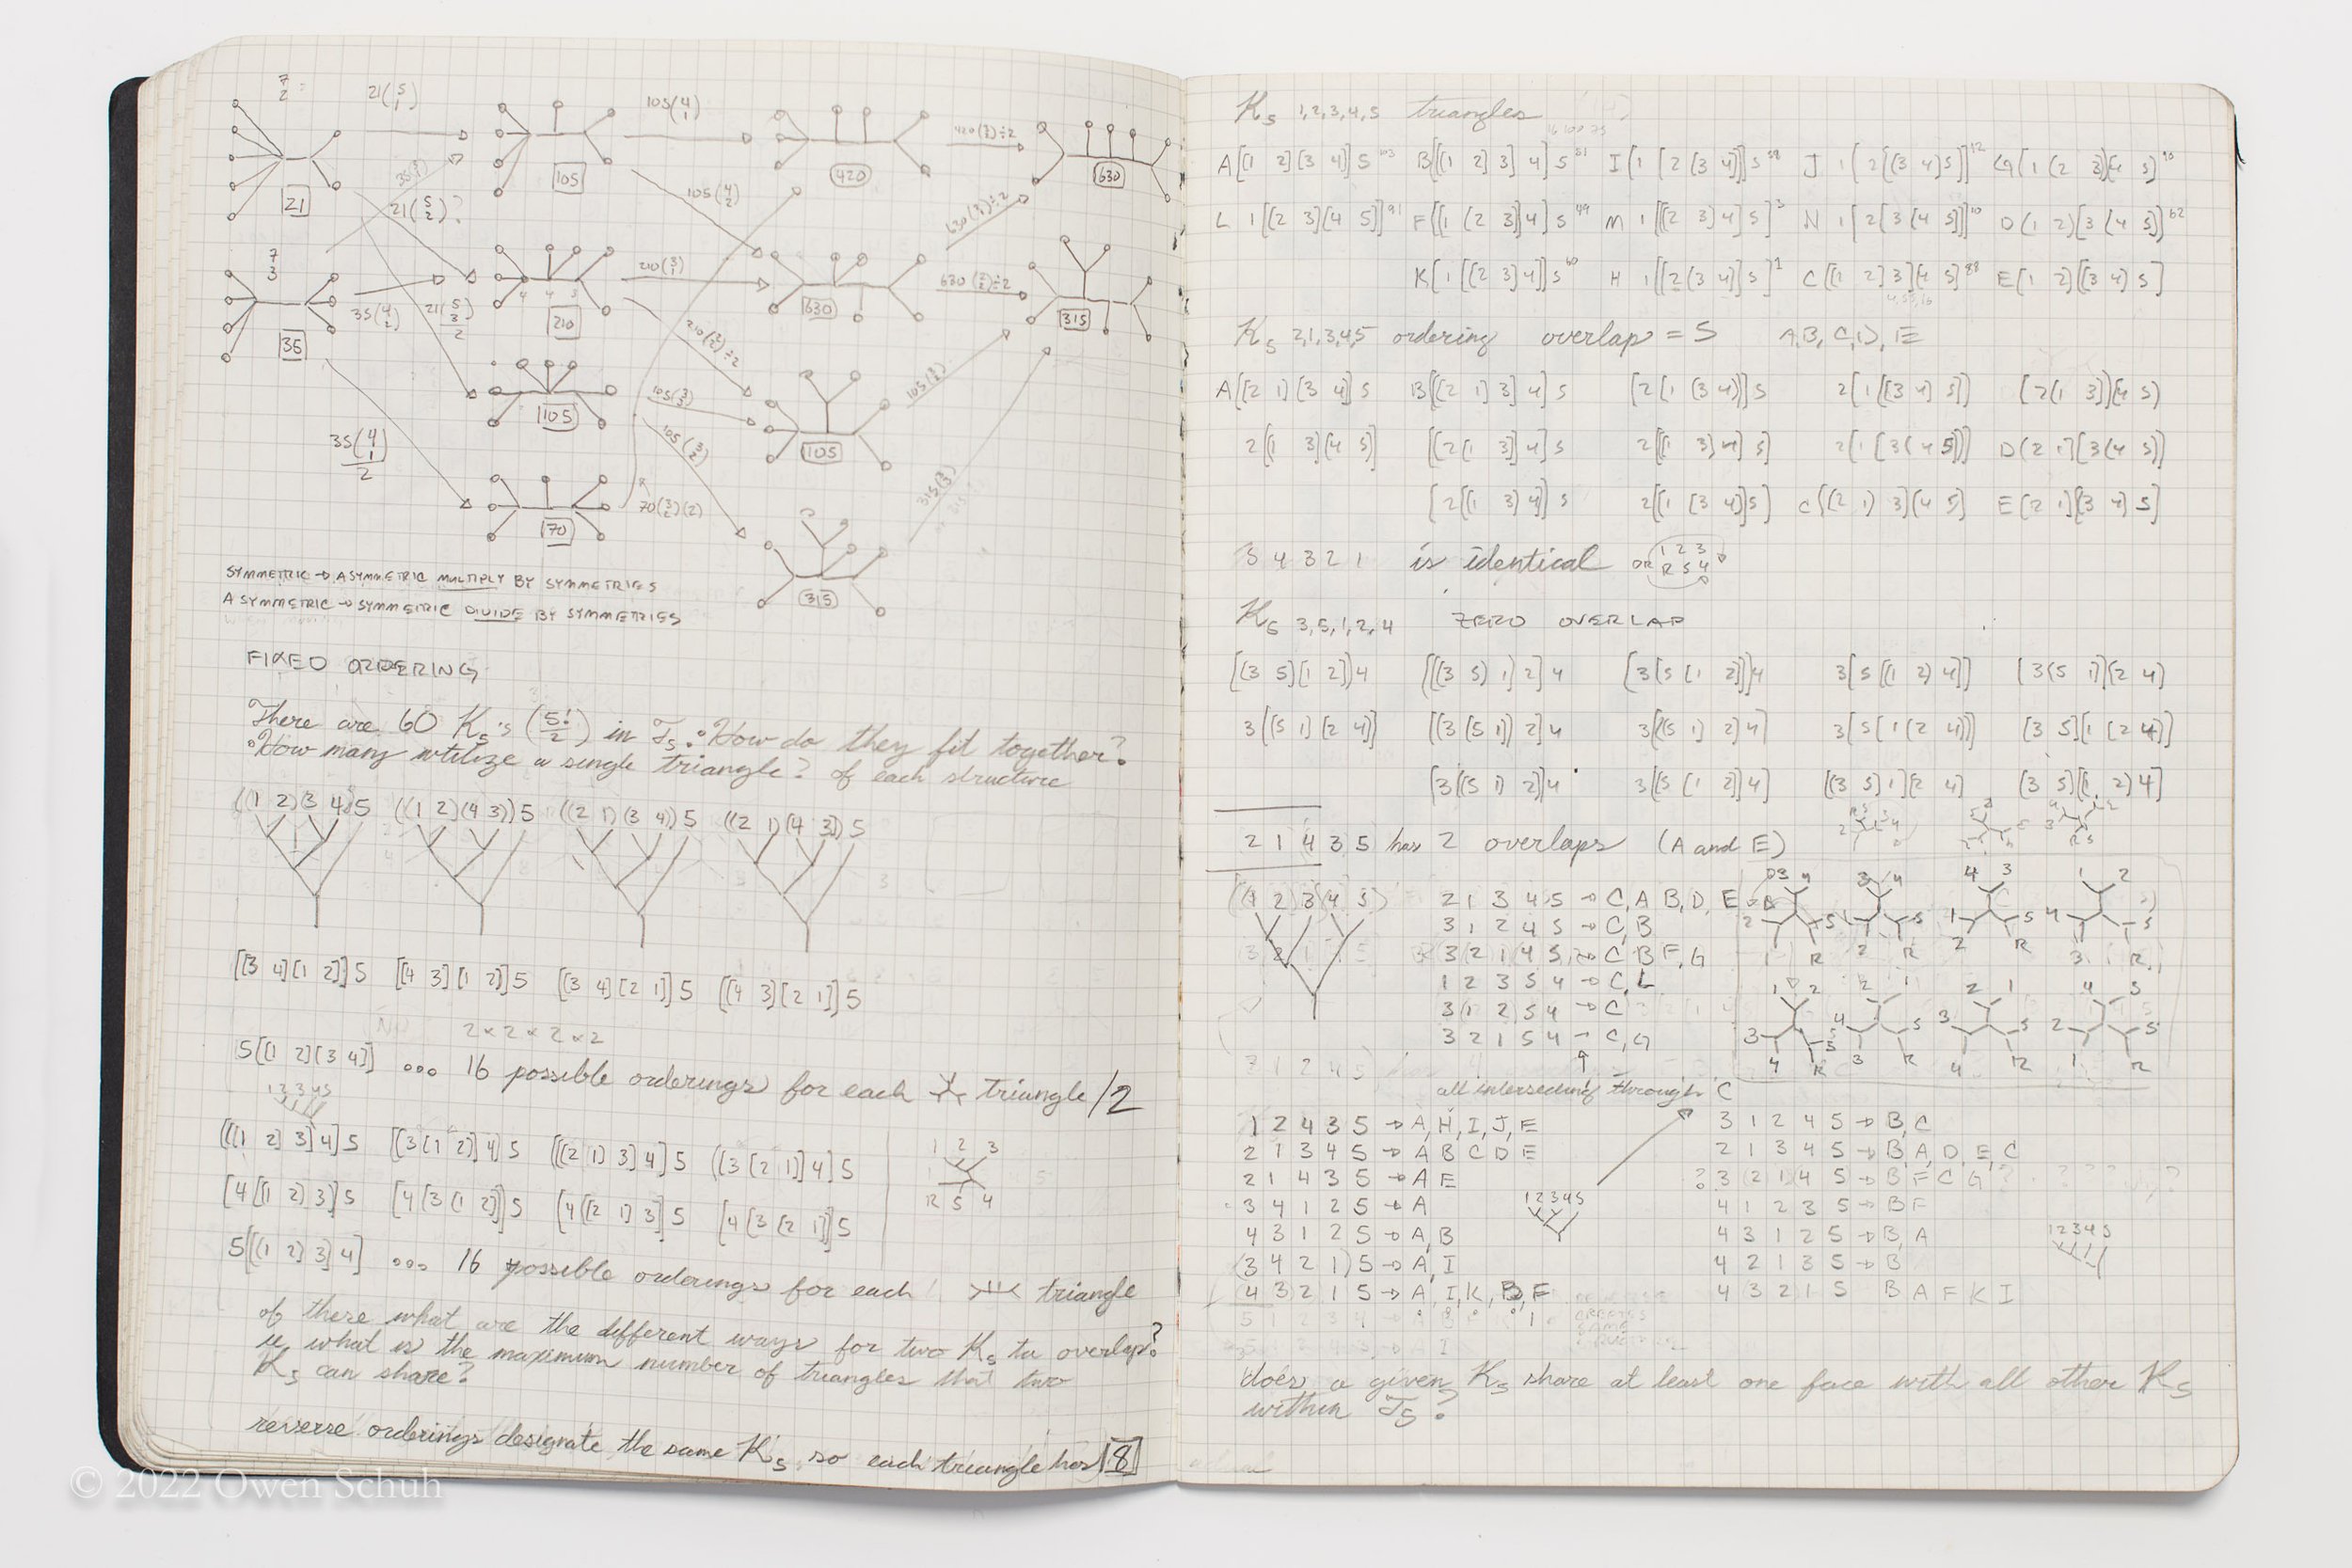 7
2
21(5 1)
105(4 1)
420(3 1)÷2
21
105
420
630
35(4 3)
21(5 2)?
105(4 2)
630(3 1)÷2
7
3
35(4 2)
21(5 3)
2
210(3 1)
630(2 2)÷2
4 4 3
35
210
630
315
210(3 2)÷2
105
105(3 3)
105(3 2)
105
35(4 1)
2
70(3 2)(2)
70
315
SYMMETRIC → ASYMMETRIC MULTIPLY BY SYMMETRIES
ASYMMETRIC → SYMMETRIC DIVIDE BY SYMMETRIES
FIXED ORDERING
There are 60 K5's (5!/2) in T5. • How do they fit together?
• How many utilize a single triangle? of each structure
((1 2)(3 4))5 ((1 2)(4 3))5 ((2 1)(3 4))5 ((2 1)(4 3))5
[[3 4][1 2]]5 [[4 3][1 2]]5 [[3 4][2 1]]5 [[4 3][2 1]]5
2 x 2 x 2 x 2
5[(1 2)(3 4)] ... 16 possible orderings for each triangle /2
1 2 3 4 5
(((1 2) 3) 4) 5 [(3(1 2)) 4] 5 (((2 1) 3) 4) 5 ((3(2 1)) 4) 5
[4((1 2) 3)] 5 [4(3(1 2))] 5 [4((2 1) 3)] 5 [4(3(2 1))] 5
1 2 3
R 5 4
5[((1 2) 3) 4] ... 16 possible orderings for each triangle
of these what are the different ways for two K5 to overlap?
ie what is the maximum number of triangles that two
K5 can share?
reverse orderings designate the same K5 so each triangle has 8
K5 1,2,3,4,5 triangles
A[(1 2)(3 4)] 5 103 B[((1 2) 3) 4] 5 51 I[1 [2(3 4)]] 5 58 J 1[2((3 4) 5)] 12 G(1(2 3))(4 5) 90
L 1[(2 3)(4 5)] 91 F[(1(2 3)) 4] 5 49 M 1[((2 3) 4) 5] 3 N 1[2[3(4 5)]] 10 D(1 2)[3(4 5)] 62
K[1[(2 3) 4]] 5 60 H 1[(2(3 4)) 5] 1 C((1 2) 3)(4 5) 88 E(1 2)[(3 4) 5]
K5 2,1,3,4,5 ordering overlap = 5 A,B,C,D,E
A[(2 1)(3 4)] 5 B[((2 1) 3) 4] 5 [2(1(3 4))] 5 2[1((3 4) 5)] [2(1 3)](4 5)
2[(1 3)(4 5)] [(2(1 3)) 4] 5 2[((1 3) 4) 5] 2[1[3(4 5)]] D(2 1)[3(4 5)]
[2((1 3) 4)] 5 2[(1(3 4)) 5] C((2 1) 3)(4 5) E(2 1)[(3 4) 5]
5 4 3 2 1 is identical OR 1 2 3 R 5 4
K5 3,5,1,2,4 ZERO OVERLAP
[(3 5)(1 2)] 4 [((3 5) 1) 2] 4 [3(5(1 2))] 4 3[5((1 2) 4)] [3(5 1)](2 4)
3[(5 1)(2 4)] [(3(5 1)) 2] 4 3[((5 1) 2) 4] 3[5(1(2 4))] (3 5)[1(2 4)]
[3((5 1) 2)] 4 3[(5(1 2)) 4] [(3 5) 1](2 4) (3 5)[(1 2) 4]
2 1 4 3 5 has 2 overlaps (A and E)
((1 2) 3)(4 5)
2 1 3 4 5 → C, A B, D, E
3 1 2 4 5 → C, B
3(2 1)4 5 → C B F, G
1 2 3 5 4 → C, L
3(1 2)5 4 → C
3 2 1 5 4 → C, G
all intersecting through C
1 2 4 3 5 → A, H, I, J, E
2 1 3 4 5 → A B C D E
2 1 4 3 5 → A E
3 4 1 2 5 → A
4 3 1 2 5 → A, B
(3 4 2 1) 5 → A, I
4 3 2 1 5 → A, I, K, B, F
1 2 3 4 5
3 1 2 4 5 → B, C
2 1 3 4 5 → B, A, D, E, C
? 3(2 1)4 5 → B F C G ?
4 1 2 3 5 → B F
4 3 1 2 5 → B, A
4 2 1 3 5 → B
4 3 2 1 5 B A F K I
1 2 3 4 5
does a given K5 share at least one face with all other K5
within T5?
© 2022 Owen Schuh